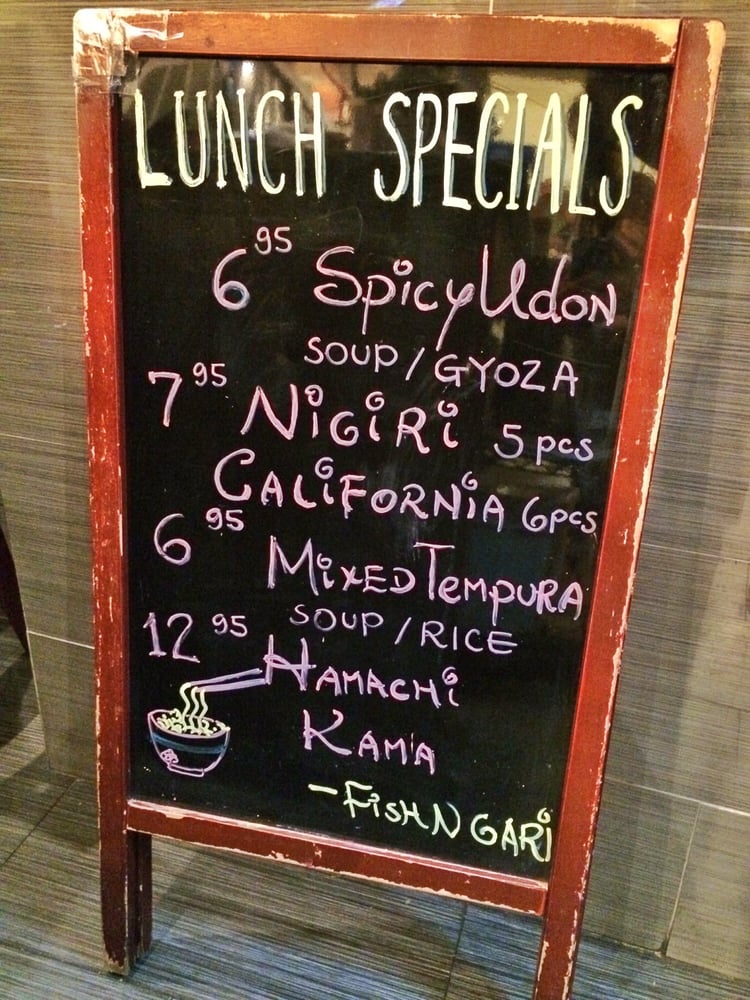 LUNCH SPECIALS
6 95 Spicy Udon
SOUP / GYOZA
7 95 NiGiRi 5 pcs
CALiFORNiA 6pcs
6 95 MiXED TEMPURA
SOUP / RICE
12 95 HAMACHi
KAMA
- FiSH N GARi